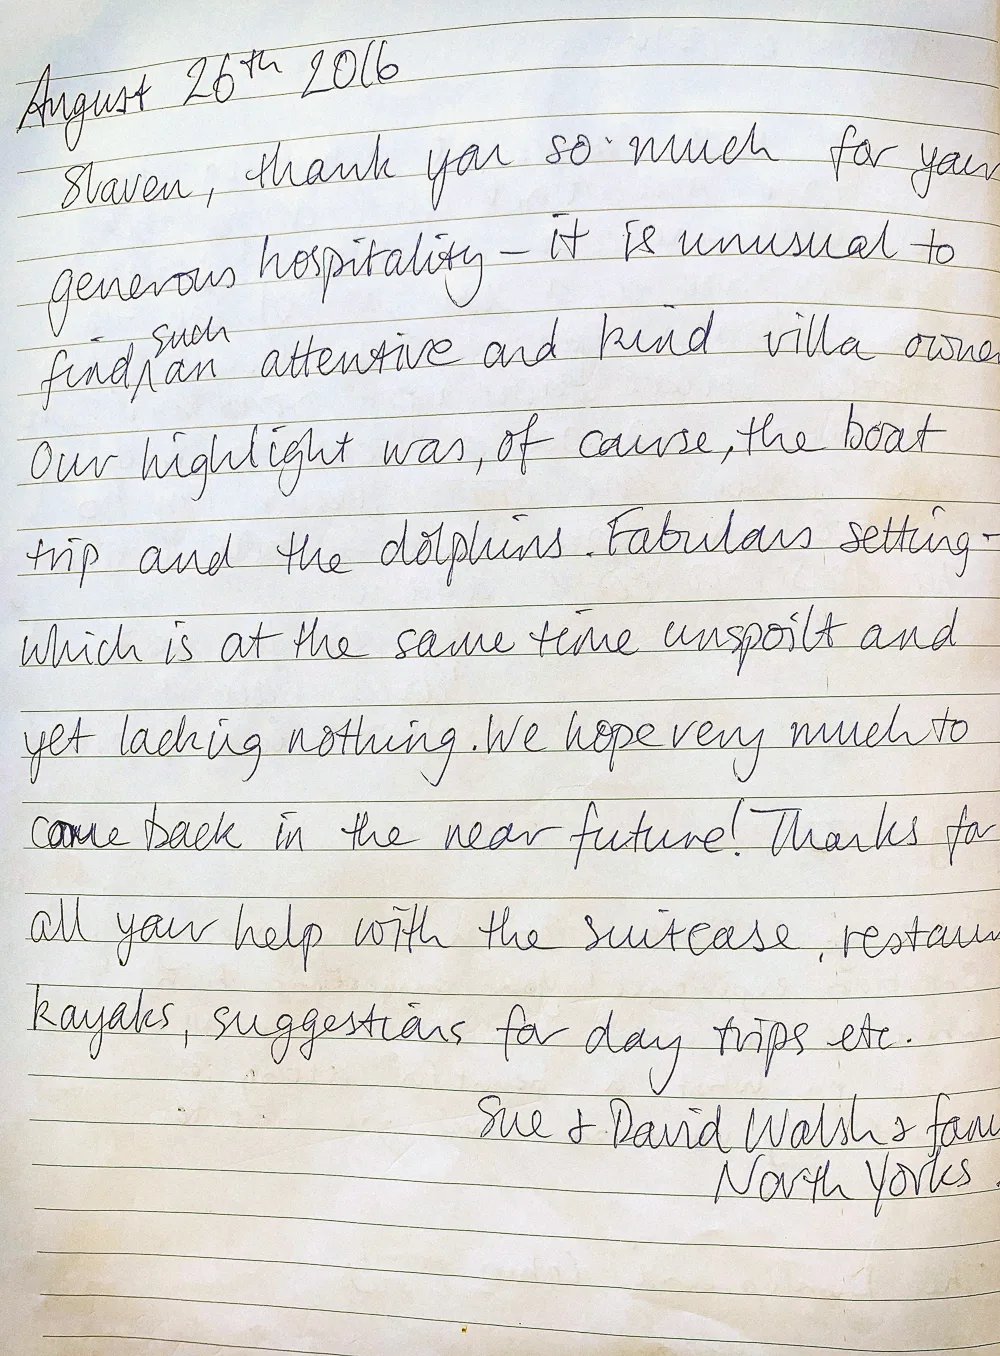 August 26th 2016
Slaven, thank you so much for your
generous hospitality – it is unusual to
such
find ^ an attentive and kind villa owner
Our highlight was, of course, the boat
trip and the dolphins. Fabulous setting –
which is at the same time unspoilt and
yet lacking nothing. We hope very much to
come back in the near future! Thanks for
all your help with the suitcase, restau
kayaks, suggestions for day trips etc.
Sue & David Walsh & fam
North Yorks.